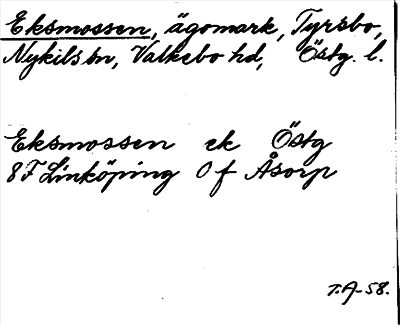 Eksmossen, ägomark, Tyrsbo,
Nykils sn, Valkebo hd, Östg. l.
Eksmossen ek Östg
8F Linköping 0f Åsorp
T.A-58.